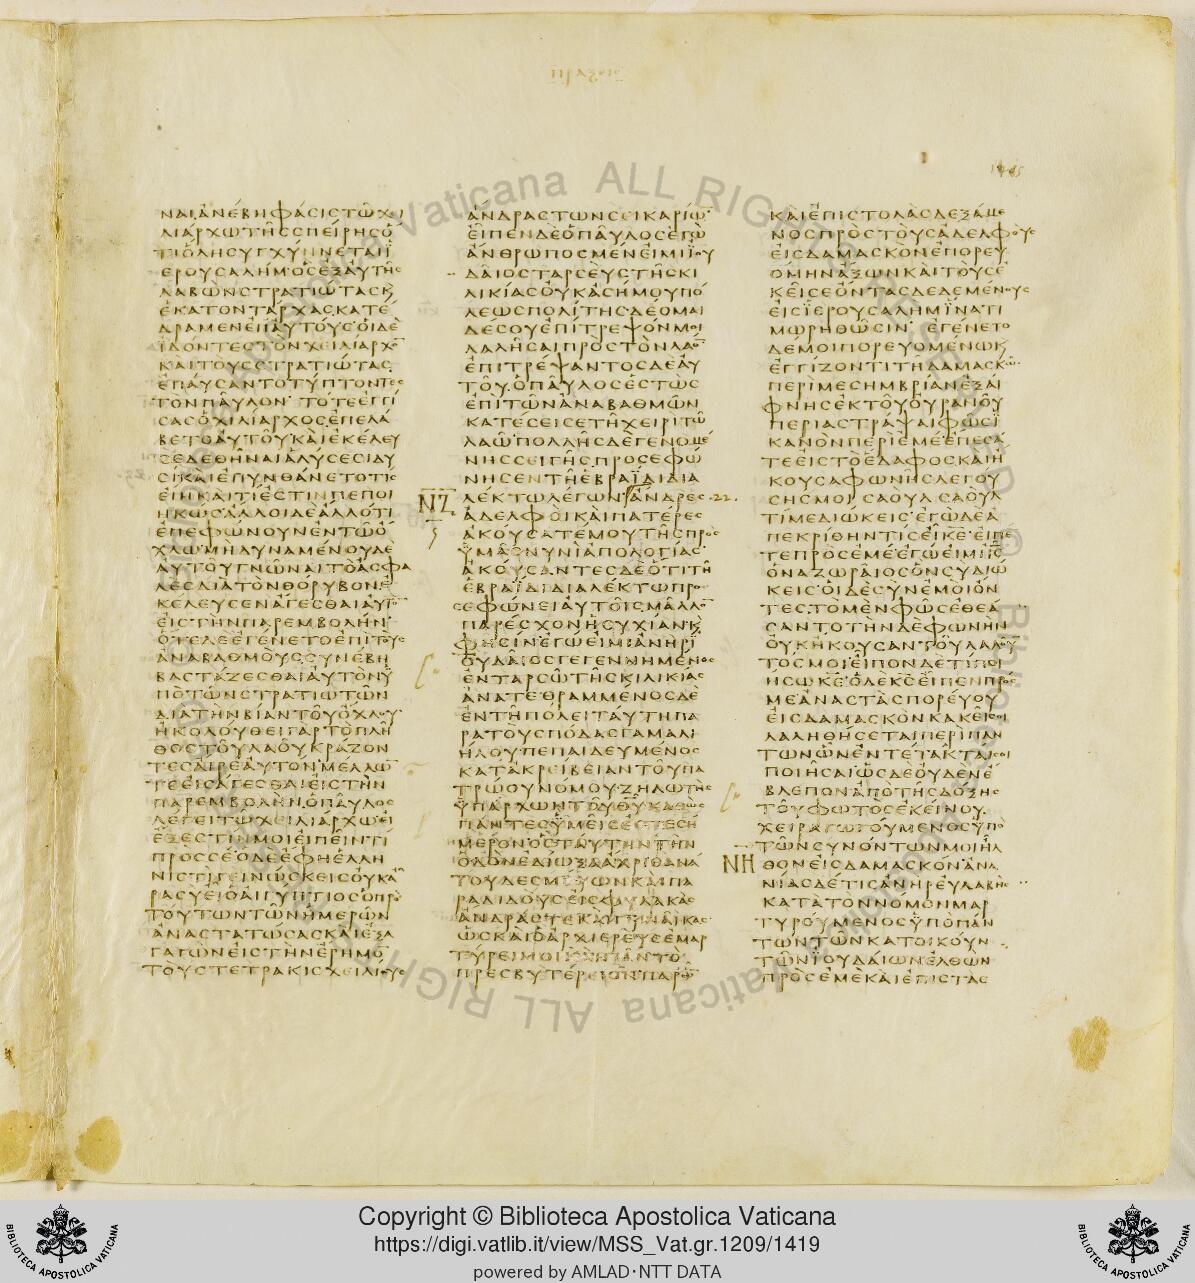 ΝΑΙ ΑΝΕΒΗ ΦΑΣΙΣ ΤΩ ΧΕΙ
ΛΙΑΡΧΩ ΤΗΣ ΣΠΕΙΡΗΣ Ο
ΤΙ ΟΛΗ ΣΥΓΧΥΝΝΕΤΑΙ Ϊ
ΕΡΟΥΣΑΛΗΜ ΟΣ ΕΞΑΥΤΗΣ
ΛΑΒΩΝ ΣΤΡΑΤΙΩΤΑΣ Κ
ΕΚΑΤΟΝΤΑΡΧΑΣ ΚΑΤΕ
ΔΡΑΜΕΝ ΕΠ ΑΥΤΟΥΣ ΟΙ ΔΕ
ΪΔΟΝΤΕΣ ΤΟΝ ΧΕΙΛΙΑΡΧΟ
ΚΑΙ ΤΟΥΣ ΣΤΡΑΤΙΩΤΑΣ
ΕΠΑΥΣΑΝΤΟ ΤΥΠΤΟΝΤΕΣ
ΤΟΝ ΠΑΥΛΟΝ ΤΟΤΕ ΕΓΓΙ
ΣΑΣ Ο ΧΙΛΙΑΡΧΟΣ ΕΠΕΛΑ
ΒΕΤΟ ΑΥΤΟΥ ΚΑΙ ΕΚΕΛΕΥ
ΣΕ ΔΕΘΗΝΑΙ ΑΛΥΣΕΣΙ ΔΥ
ΣΙ ΚΑΙ ΕΠΥΝΘΑΝΕΤΟ ΤΙΣ
ΕΙΗ ΚΑΙ ΤΙ ΕΣΤΙΝ ΠΕΠΟΙ
ΗΚΩΣ ΑΛΛΟΙ ΔΕ ΑΛΛΟ ΤΙ
ΕΠΕΦΩΝΟΥΝ ΕΝ ΤΩ Ο
ΧΛΩ ΜΗ ΔΥΝΑΜΕΝΟΥ ΔΕ
ΑΥΤΟΥ ΓΝΩΝΑΙ ΤΟ ΑΣΦΑ
ΛΕΣ ΔΙΑ ΤΟΝ ΘΟΡΥΒΟΝ Ε
ΚΕΛΕΥΣΕΝ ΑΓΕΣΘΑΙ ΑΥΤΟ
ΕΙΣ ΤΗΝ ΠΑΡΕΜΒΟΛΗΝ
ΟΤΕ ΔΕ ΕΓΕΝΕΤΟ ΕΠΙ ΤΟΥΣ
ΑΝΑΒΑΘΜΟΥΣ ΣΥΝΕΒΗ
ΒΑΣΤΑΖΕΣΘΑΙ ΑΥΤΟΝ Ϋ
ΠΟ ΤΩΝ ΣΤΡΑΤΙΩΤΩΝ
ΔΙΑ ΤΗΝ ΒΙΑΝ ΤΟΥ ΟΧΛΟΥ
ΗΚΟΛΟΥΘΕΙ ΓΑΡ ΤΟ ΠΛΗ
ΘΟΣ ΤΟΥ ΛΑΟΥ ΚΡΑΖΟΝ
ΤΕΣ ΑΙΡΕ ΑΥΤΟΝ ΜΕΛΛΩ
ΤΕ ΕΙΣΑΓΕΣΘΑΙ ΕΙΣ ΤΗΝ
ΠΑΡΕΜΒΟΛΗΝ Ο ΠΑΥΛΟΣ
ΛΕΓΕΙ ΤΩ ΧΕΙΛΙΑΡΧΩ ΕΙ
ΕΞΕΣΤΙΝ ΜΟΙ ΕΙΠΕΙΝ ΤΙ
ΠΡΟΣ ΣΕ Ο ΔΕ ΕΦΗ ΕΛΛΗ
ΝΙΣΤΙ ΓΕΙΝΩΣΚΕΙΣ ΟΥΚ ΑΡΑ
ΡΑ ΣΥ ΕΙ Ο ΑΙΓΥΠΤΙΟΣ Ο ΠΡΟ
ΤΟΥΤΩΝ ΤΩΝ ΗΜΕΡΩΝ
ΑΝΑΣΤΑΤΩΣΑΣ ΚΑΙ ΕΞΑ
ΓΑΓΩΝ ΕΙΣ ΤΗΝ ΕΡΗΜΟ
ΤΟΥΣ ΤΕΤΡΑΚΙΣΧΕΙΛΙΟΥΣ
ΑΝΔΡΑΣ ΤΩΝ ΣΕΙΚΑΡΙΩ
ΕΙΠΕΝ ΔΕ Ο ΠΑΥΛΟΣ ΕΓΩ
ΑΝΘΡΩΠΟΣ ΜΕΝ ΕΙΜΙ ΪΟΥ
ΔΑΙΟΣ ΤΑΡΣΕΥΣ ΤΗΣ ΚΙ
ΛΙΚΙΑΣ ΟΥΚ ΑΣΗΜΟΥ ΠΟ
ΛΕΩΣ ΠΟΛΙΤΗΣ ΔΕΟΜΑΙ
ΔΕ ΣΟΥ ΕΠΙΤΡΕΨΟΝ ΜΟΙ
ΛΑΛΗΣΑΙ ΠΡΟΣ ΤΟΝ ΛΑΟ
ΕΠΙΤΡΕΨΑΝΤΟΣ ΔΕ ΑΥ
ΤΟΥ Ο ΠΑΥΛΟΣ ΕΣΤΩΣ
ΕΠΙ ΤΩΝ ΑΝΑΒΑΘΜΩΝ
ΚΑΤΕΣΕΙΣΕ ΤΗ ΧΕΙΡΙ ΤΩ
ΛΑΩ ΠΟΛΛΗΣ ΔΕ ΓΕΝΟΜΕ
ΝΗΣ ΣΕΙΓΗΣ ΠΡΟΣΕΦΩ
ΝΗΣΕΝ ΤΗ ΕΒΡΑΪΔΙ ΔΙΑ
ΝΖ
ΛΕΚΤΩ ΛΕΓΩΝ ΑΝΔΡΕΣ 22.
ΑΔΕΛΦΟΙ ΚΑΙ ΠΑΤΕΡΕΣ
ΑΚΟΥΣΑΤΕ ΜΟΥ ΤΗΣ ΠΡΟΣ
ΫΜΑΣ ΝΥΝΙ ΑΠΟΛΟΓΙΑΣ
ΑΚΟΥΣΑΝΤΕΣ ΔΕ ΟΤΙ ΤΗ
ΕΒΡΑΪΔΙ ΔΙΑΛΕΚΤΩ ΠΡΟ
ΣΕΦΩΝΕΙ ΑΥΤΟΙΣ ΜΑΛΛΟ
ΠΑΡΕΣΧΟΝ ΗΣΥΧΙΑΝ Κ
ΦΗΣΙΝ ΕΓΩ ΕΙΜΙ ΑΝΗΡ Ϊ
ΟΥΔΑΙΟΣ ΓΕΓΕΝΝΗΜΕΝΟΣ
ΕΝ ΤΑΡΣΩ ΤΗΣ ΚΙΛΙΚΙΑΣ
ΑΝΑΤΕΘΡΑΜΜΕΝΟΣ ΔΕ
ΕΝ ΤΗ ΠΟΛΕΙ ΤΑΥΤΗ ΠΑ
ΡΑ ΤΟΥΣ ΠΟΔΑΣ ΓΑΜΑΛΙ
ΗΛΟΥ ΠΕΠΑΙΔΕΥΜΕΝΟΣ
ΚΑΤΑ ΑΚΡΕΙΒΕΙΑΝ ΤΟΥ ΠΑ
ΤΡΩΟΥ ΝΟΜΟΥ ΖΗΛΩΤΗΣ
ΫΠΑΡΧΩΝ ΤΟΥ ΘΥ ΚΑΘΩΣ
ΠΑΝΤΕΣ ΫΜΕΙΣ ΕΣΤΕ ΣΗ
ΜΕΡΟΝ ΟΣ ΤΑΥΤΗΝ ΤΗΝ
ΟΔΟΝ ΕΔΙΩΞΑ ΑΧΡΙ ΘΑΝΑ
ΤΟΥ ΔΕΣΜΕΥΩΝ ΚΑΙ ΠΑ
ΡΑΔΙΔΟΥΣ ΕΙΣ ΦΥΛΑΚΑΣ
ΑΝΔΡΑΣ ΤΕ ΚΑΙ ΓΥΝΑΙΚΑΣ
ΩΣ ΚΑΙ Ο ΑΡΧΙΕΡΕΥΣ ΕΜΑΡ
ΤΥΡΕΙ ΜΟΙ ΚΑΙ ΠΑΝ ΤΟ
ΠΡΕΣΒΥΤΕΡΕΙΟΝ ΠΑΡ Ω
ΚΑΙ ΕΠΙΣΤΟΛΑΣ ΔΕΞΑΜΕ
ΝΟΣ ΠΡΟΣ ΤΟΥΣ ΑΔΕΛΦΟΥΣ
ΕΙΣ ΔΑΜΑΣΚΟΝ ΕΠΟΡΕΥ
ΟΜΗΝ ΑΞΩΝ ΚΑΙ ΤΟΥΣ Ε
ΚΕΙΣΕ ΟΝΤΑΣ ΔΕΔΕΜΕΝΟΥΣ
ΕΙΣ ΪΕΡΟΥΣΑΛΗΜ ΪΝΑ ΤΙ
ΜΩΡΗΘΩΣΙΝ ΕΓΕΝΕΤΟ
ΔΕ ΜΟΙ ΠΟΡΕΥΟΜΕΝΩ Κ
ΕΓΓΙΖΟΝΤΙ ΤΗ ΔΑΜΑΣΚΩ
ΠΕΡΙ ΜΕΣΗΜΒΡΙΑΝ ΕΞΑΙ
ΦΝΗΣ ΕΚ ΤΟΥ ΟΥΡΑΝΟΥ
ΠΕΡΙΑΣΤΡΑΨΑΙ ΦΩΣ Ϊ
ΚΑΝΟΝ ΠΕΡΙ ΕΜΕ ΕΠΕΣΑ
ΤΕ ΕΙΣ ΤΟ ΕΔΑΦΟΣ ΚΑΙ Η
ΚΟΥΣΑ ΦΩΝΗΣ ΛΕΓΟΥ
ΣΗΣ ΜΟΙ ΣΑΟΥΛ ΣΑΟΥΛ
ΤΙ ΜΕ ΔΙΩΚΕΙΣ ΕΓΩ ΔΕ Α
ΠΕΚΡΙΘΗΝ ΤΙΣ ΕΙ ΚΕ ΕΙΠΕ
ΤΕ ΠΡΟΣ ΕΜΕ ΕΓΩ ΕΙΜΙ ΙΣ
Ο ΝΑΖΩΡΑΙΟΣ ΟΝ ΣΥ ΔΙΩ
ΚΕΙΣ ΟΙ ΔΕ ΣΥΝ ΕΜΟΙ ΟΝ
ΤΕΣ ΤΟ ΜΕΝ ΦΩΣ ΕΘΕΑ
ΣΑΝΤΟ ΤΗΝ ΔΕ ΦΩΝΗΝ
ΟΥΚ ΗΚΟΥΣΑΝ ΤΟΥ ΛΑΛΟΥ
ΤΟΣ ΜΟΙ ΕΙΠΟΝ ΔΕ ΤΙ ΠΟΙ
ΗΣΩ ΚΕ Ο ΔΕ ΚΣ ΕΙΠΕΝ ΠΡΟΣ
ΜΕ ΑΝΑΣΤΑΣ ΠΟΡΕΥΟΥ
ΕΙΣ ΔΑΜΑΣΚΟΝ ΚΑΚΕΙ ΣΟΙ
ΛΑΛΗΘΗΣΕΤΑΙ ΠΕΡΙ ΠΑΝ
ΤΩΝ ΩΝ ΕΝΤΕΤΑΚΤΑΙ ΣΟΙ
ΠΟΙΗΣΑΙ ΩΣ ΔΕ ΟΥΔΕΝ Ε
ΒΛΕΠΟΝ ΑΠΟ ΤΗΣ ΔΟΞΗΣ
ΤΟΥ ΦΩΤΟΣ ΕΚΕΙΝΟΥ
ΧΕΙΡΑΓΩΓΟΥΜΕΝΟΣ ΫΠΟ
ΤΩΝ ΣΥΝΟΝΤΩΝ ΜΟΙ ΗΛ
ΝΗ
ΘΟΝ ΕΙΣ ΔΑΜΑΣΚΟΝ ΑΝΑ
ΝΙΑΣ ΔΕ ΤΙΣ ΑΝΗΡ ΕΥΛΑΒΗΣ
ΚΑΤΑ ΤΟΝ ΝΟΜΟΝ ΜΑΡ
ΤΥΡΟΥΜΕΝΟΣ ΫΠΟ ΠΑΝ
ΤΩΝ ΤΩΝ ΚΑΤΟΙΚΟΥΝ
ΤΩΝ ΙΟΥΔΑΙΩΝ ΕΛΘΩΝ
ΠΡΟΣ ΕΜΕ ΚΑΙ ΕΠΙΣΤΑΣ
Copyright © Biblioteca Apostolica Vaticana
https://digi.vatlib.it/view/MSS_Vat.gr.1209/1419
powered by AMLAD·NTT DATA